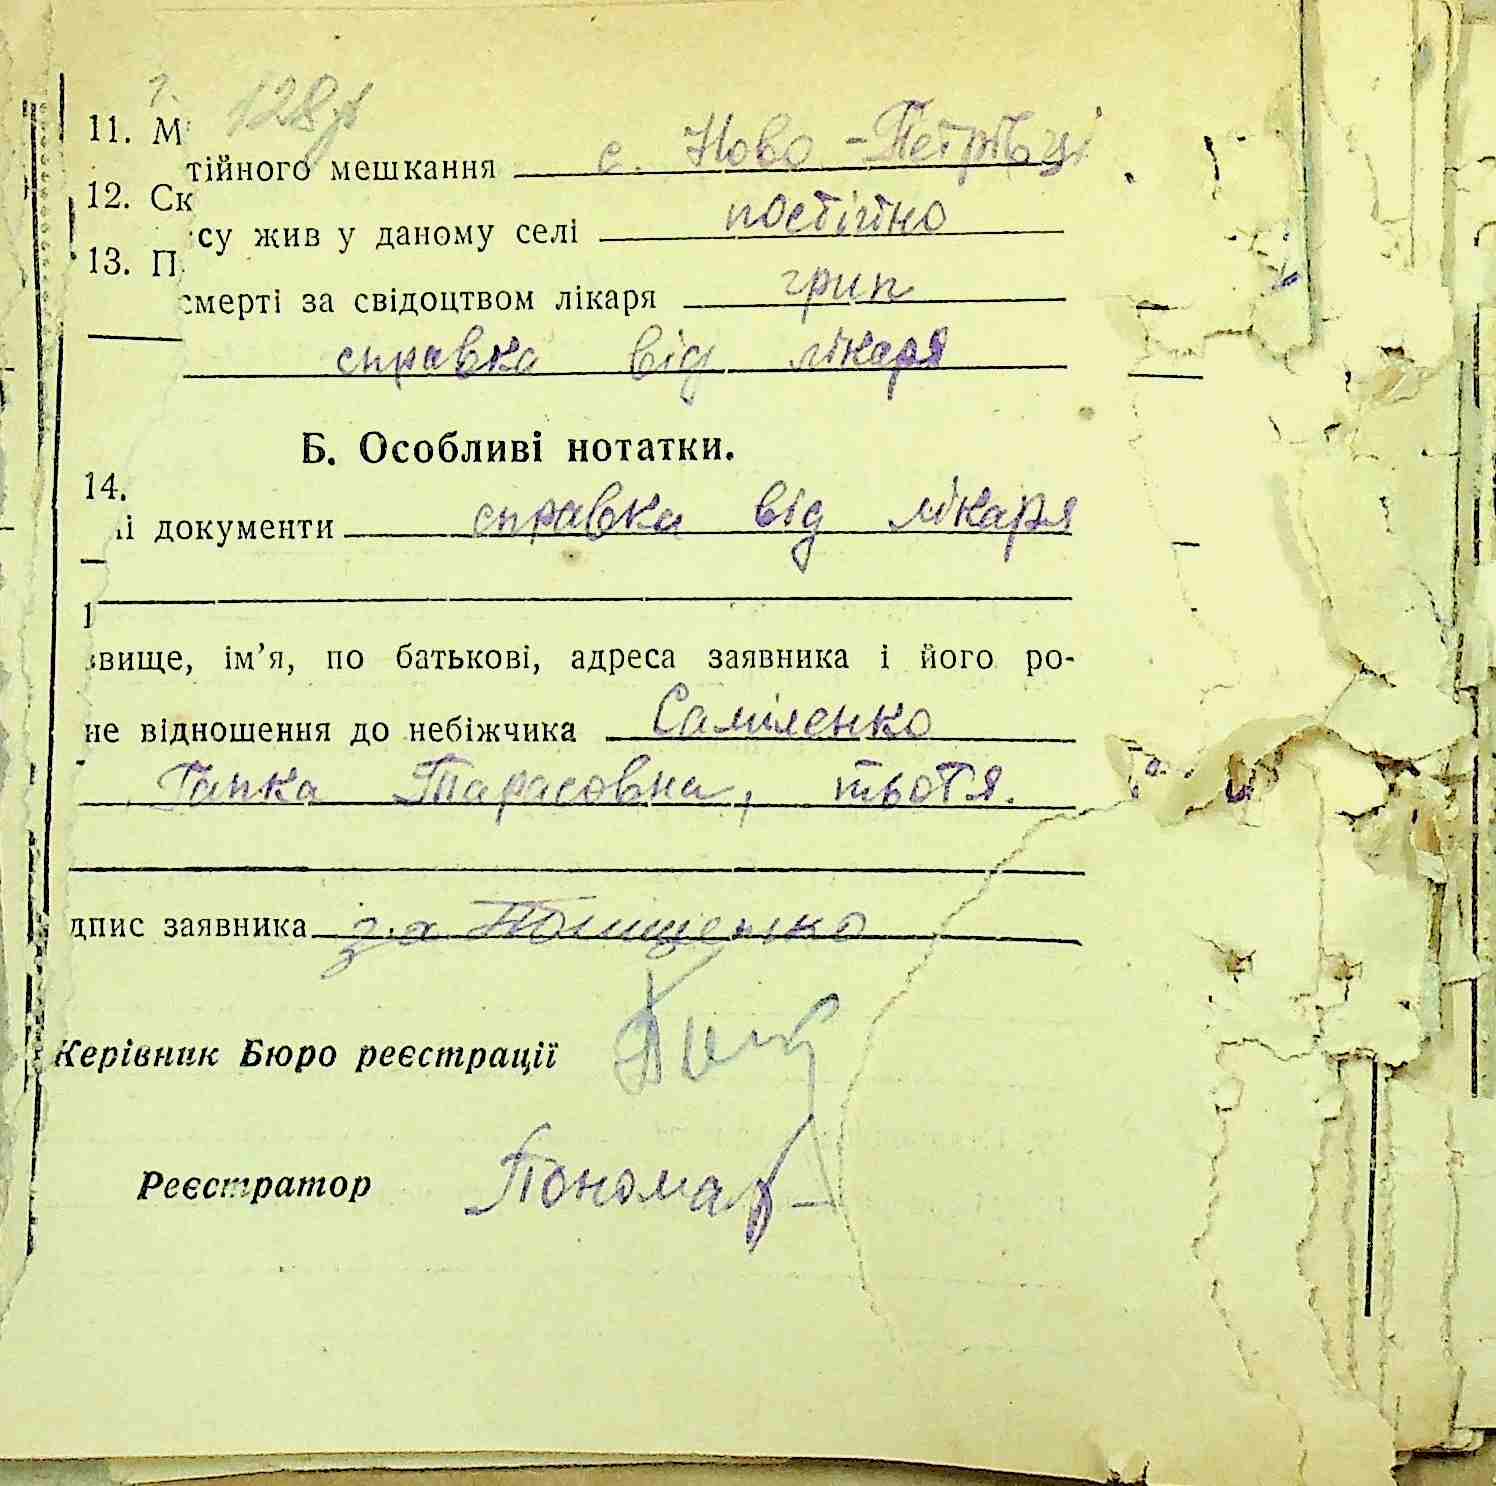 128
11. М
тійного мешкання с. Ново-Петрівці
12. Ск
су жив у даному селі постійно
13. П
смерті за свідоцтвом лікаря грип
справка від лікаря
Б. Особливі нотатки.
14.
ні документи справка від лікаря
вище, ім’я, по батькові, адреса заявника і його ро-
не відношення до небіжчика Саміленко
Гапка Тарасовна, тьотя.
дпис заявника за
Керівник Бюро реєстрації
Реєстратор Пономар